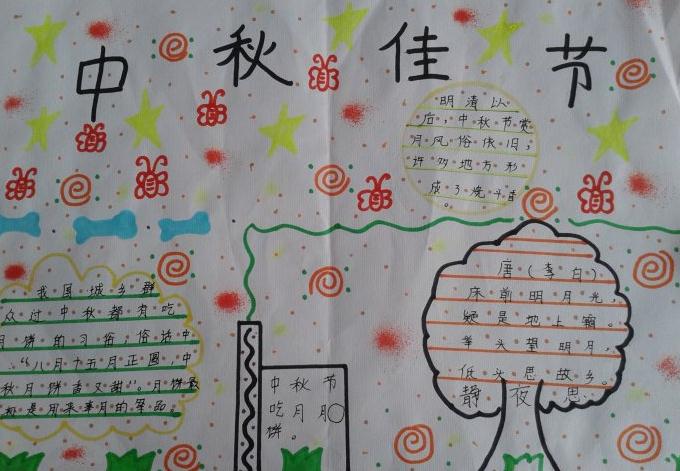 中秋佳节
明清以
后，中秋节赏
月风俗依旧，
许多地方形
成了烧斗香
。
我国城乡群
众过中秋都有吃
月饼的习俗，俗话中
：“八月十五月正圆，中
秋月饼香又甜”。月饼最
初是用来奉月的祭品。
中秋节
吃月
饼。
唐（李白）
床前明月光，
疑是地上霜。
举头望明月，
低头思故乡。
静夜思